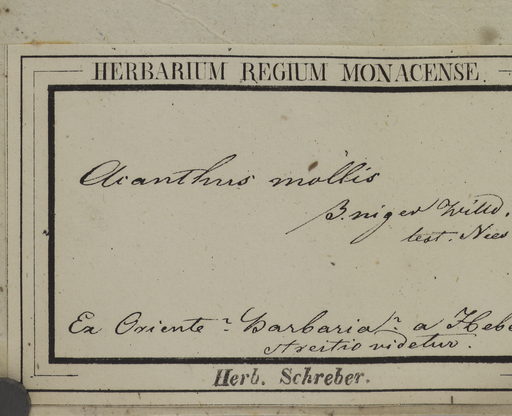 HERBARIUM REGIUM MONACENSE
Acanthus mollis
β. niger Willd.
test. Nees
Ex Oriente Barbaria a Hebe
videtur.
Herb. Schreber.